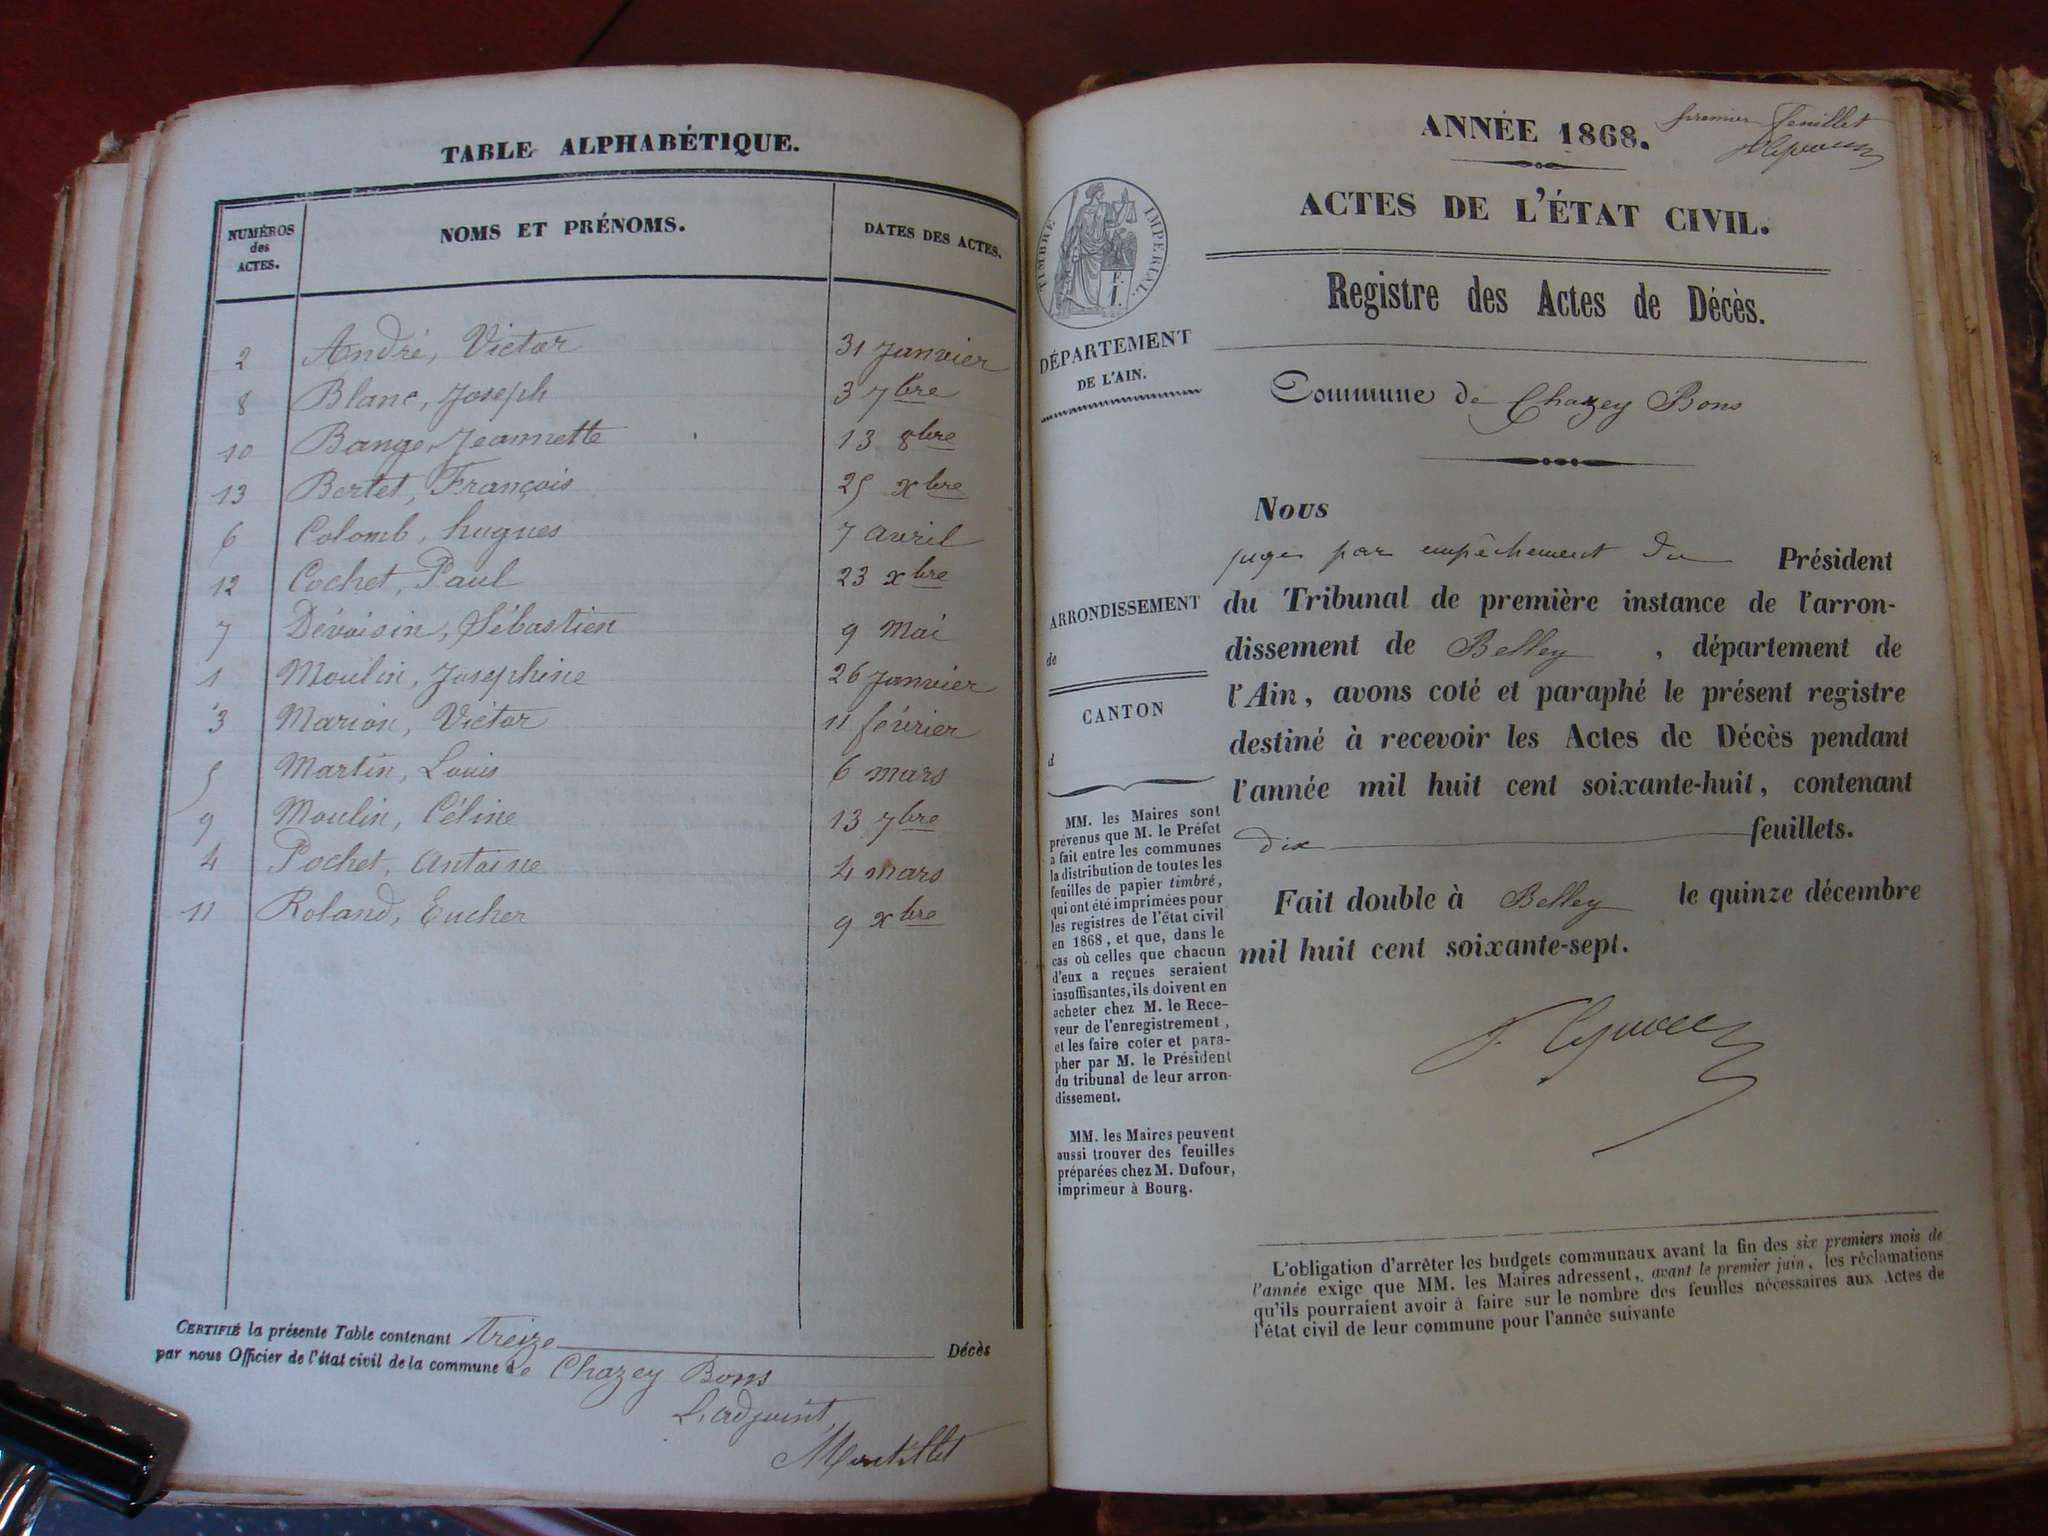 TABLE ALPHABÉTIQUE.
NUMÉROS des ACTES. NOMS ET PRÉNOMS. DATES DES ACTES.
2 André, Victor 31 Janvier
8 Blanc, Joseph 3 7bre
10 Bange, Jeannette 13 8bre
13 Bertet, François 25 xbre
6 Colomb, hugues 7 avril
12 Cochet, Paul 23 xbre
7 Dévoisin, Sébastien 9 Mai
1 Moulin, Josephine 26 Janvier
3 Marion, Victor 11 février
5 Martin, Louis 6 mars
9 Moulin, Céline 13 7bre
4 Pochet, Antoine 4 mars
11 Roland, Eucher 9 xbre
CERTIFIÉ la présente Table contenant Treize Décès
par nous Officier de l'état civil de la commune de Chazey Bons
L'adjoint,
ANNÉE 1868.
premier feuillet
ACTES DE L'ÉTAT CIVIL.
TIMBRE IMPERIAL.
Registre des Actes de Décès.
DÉPARTEMENT
DE L'AIN.
Commune de Chazey Bons
Nous
juge par empêchement du Président
du Tribunal de première instance de l'arron-
dissement de Belley, département de
l'Ain, avons coté et paraphé le présent registre
destiné à recevoir les Actes de Décès pendant
l'année mil huit cent soixante-huit, contenant
dix feuillets.
Fait double à Belley le quinze décembre
mil huit cent soixante-sept.
ARRONDISSEMENT
de
CANTON
d
MM. les Maires sont
prévenus que M. le Préfet
a fait entre les communes
la distribution de toutes les
feuilles de papier timbré,
qui ont été imprimées pour
les registres de l'état civil
en 1868, et que, dans le
cas où celles que chacun
d'eux a reçues seraient
insuffisantes, ils doivent en
acheter chez M. le Rece-
veur de l'enregistrement,
et les faire coter et para-
pher par M. le Président
du tribunal de leur arron-
dissement.
MM. les Maires peuvent
aussi trouver des feuilles
préparées chez M. Dufour,
imprimeur à Bourg.
L'obligation d'arrêter les budgets communaux avant la fin des six premiers mois de
l'année exige que MM. les Maires adressent, avant le premier juin, les réclamations
qu'ils pourraient avoir à faire sur le nombre des feuilles nécessaires aux Actes de
l'état civil de leur commune pour l'année suivante